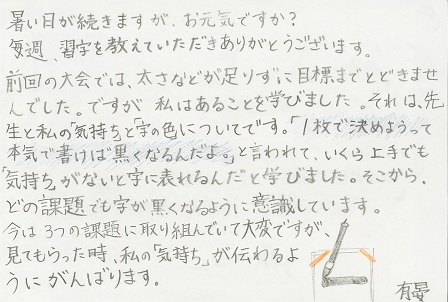 暑い日が続きますが、お元気ですか?
毎週、習字を教えていただきありがとうございます。
前回の大会では、太さなどが足りずに目標までとどきませ
んでした。ですが 私はあることを学びました。それは、先
生と私の「気持ち」と「字の色」についてです。「1枚で決めようって
本気で書けば黒くなるんだよ。」と言われて、いくら上手でも
「気持ち」がないと字に表れるんだと学びました。そこから、
どの課題でも字が黒くなるように意識しています。
今は 3つの課題に取り組んでいて大変ですが、
見てもらった時、私の「気持ち」が伝わるよ
うにがんばります。